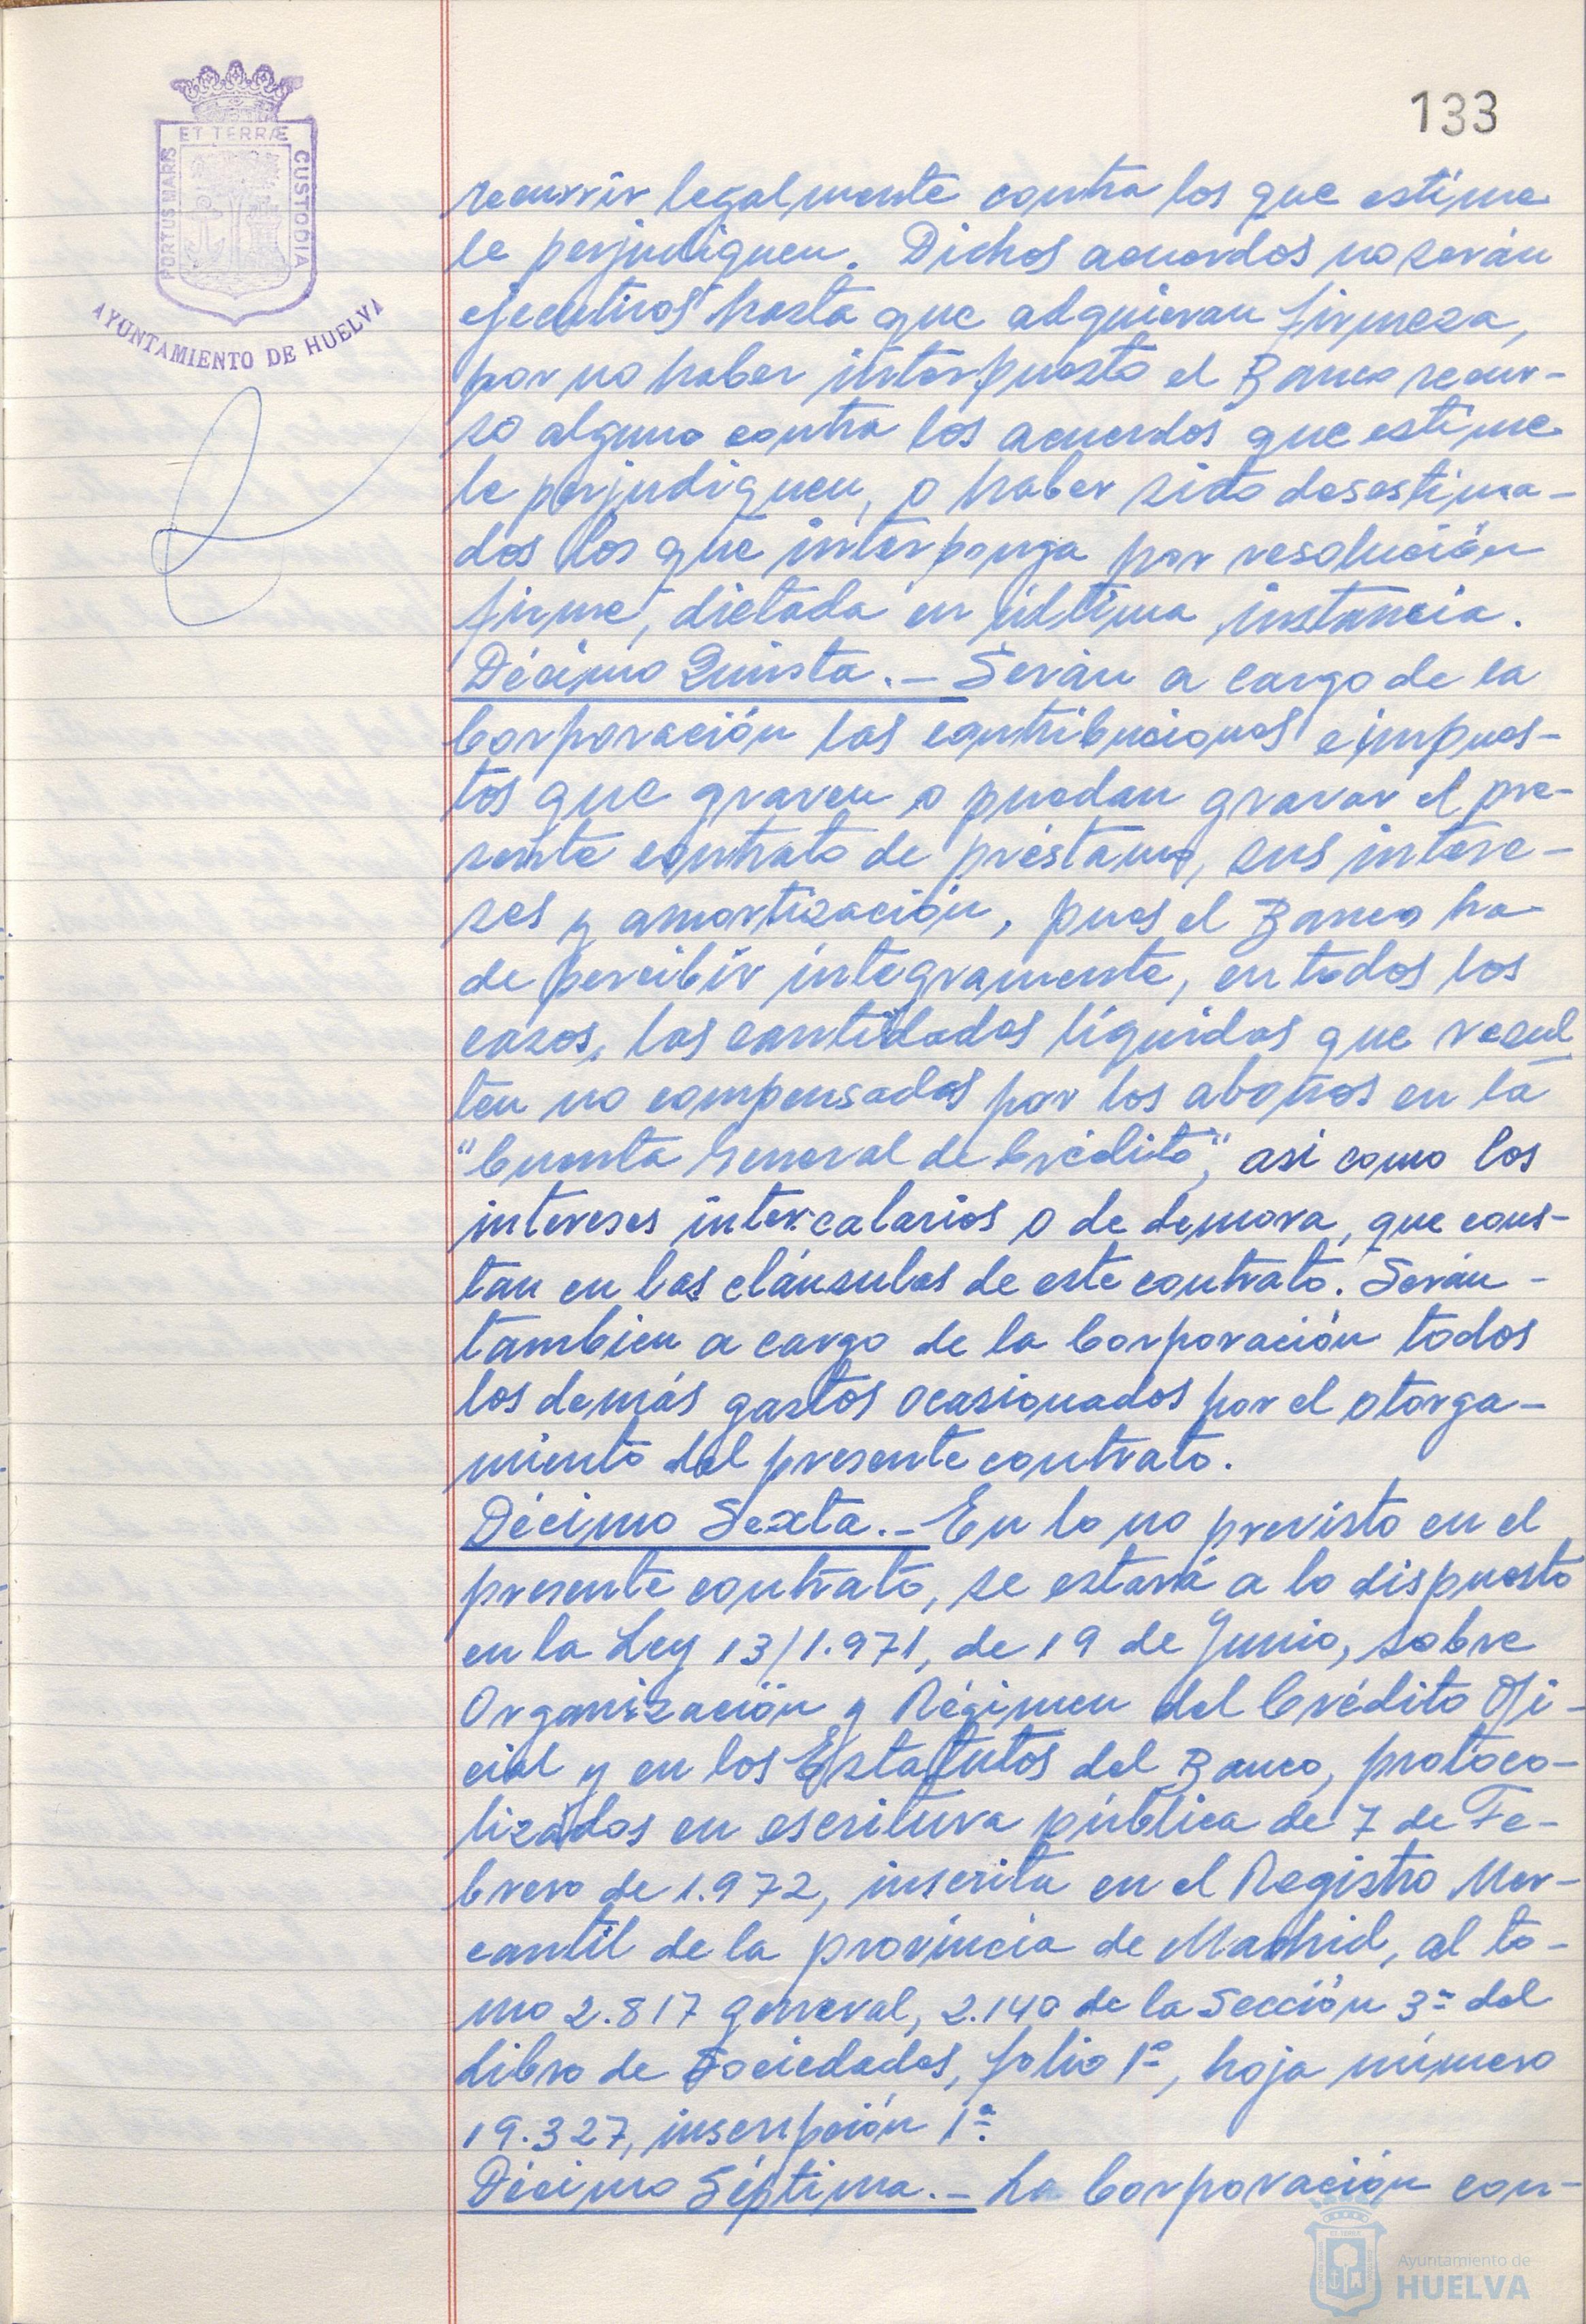 133
ET TERRÆ
PORTUS MARIS
CUSTODIA
AYUNTAMIENTO DE HUELVA
recurrir legalmente contra los que estime
le perjudiquen. Dichos acuerdos no serán
ejecutivos hasta que adquieran firmeza,
por no haber interpuesto el Banco recur-
so alguno contra los acuerdos que estime
le perjudiquen, o haber sido desestima-
dos los que interponga por resolución
firme, dictada en última instancia.
Décimo Quinta.- Serán a cargo de la
Corporación las contribuciones e impues-
tos que graven o puedan gravar el pre-
sente contrato de préstamo, sus intere-
ses y amortización, pues el Banco ha
de percibir íntegramente, en todos los
casos, las cantidades líquidas que resul
ten no compensadas por los abonos en la
"Cuenta General de Crédito", asi como los
intereses intercalarios o de demora, que cons-
tan en las cláusulas de este contrato. Serán -
tambien a cargo de la Corporación todos
los demás gastos ocasionados por el otorga-
miento del presente contrato.
Décimo Sexta.- En lo no previsto en el
presente contrato, se estará a lo dispuesto
en la Ley 13/1.971, de 19 de Junio, sobre
Organización y Régimen del Crédito Ofi-
cial y en los Estatutos del Banco, protoco-
lizados en escritura pública de 7 de Fe-
brero de 1.972, inscrita en el Registro Mer-
cantil de la provincia de Madrid, al to-
mo 2.817 general, 2.140 de la Sección 3ª del
Libro de Sociedades, folio 1º, hoja número
19.327, inscripción 1ª.
Décimo Séptima.- La Corporación con-
Ayuntamiento de
HUELVA